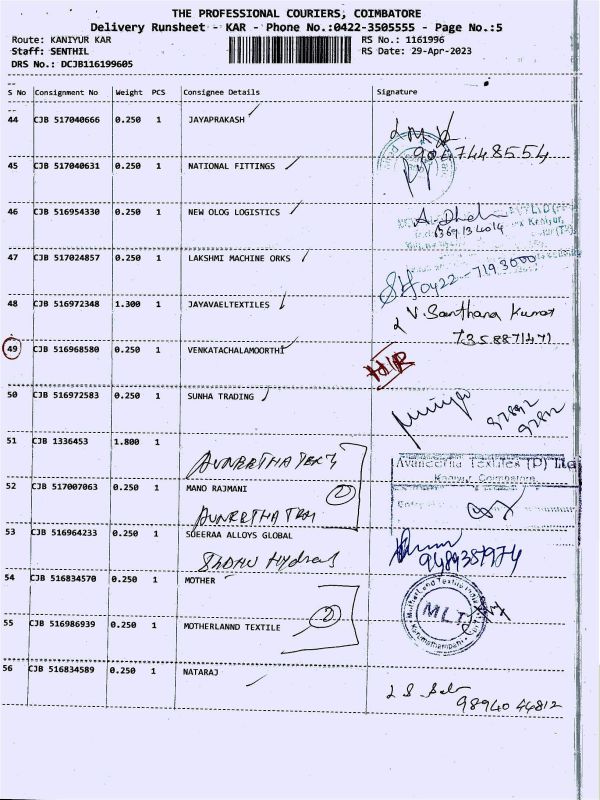 THE PROFESSIONAL COURIERS, COIMBATORE
Delivery Runsheet - KAR - Phone No.:0422-3505555 - Page No.:5
Route: KANIYUR KAR
RS No.: 1161996
Staff: SENTHIL
RS Date: 29-Apr-2023
DRS No.: DCJB116199605
S No Consignment No Weight PCS Consignee Details Signature
44 CJB 517040666 0.250 1 JAYAPRAKASH
9047448554
45 CJB 517040631 0.250 1 NATIONAL FITTINGS
46 CJB 516954330 0.250 1 NEW OLOG LOGISTICS
47 CJB 517024857 0.250 1 LAKSHMI MACHINE ORKS
0422-7193000
48 CJB 516972348 1.300 1 JAYAVAELTEXTILES
V. Santhana Kumar
7358871471
49 CJB 516968580 0.250 1 VENKATACHALAMOORTHI
50 CJB 516972583 0.250 1 SUNHA TRADING
51 CJB 1336453 1.800 1
Avaneetha Textiles (P) Ltd
Kaniyur Coimbatore
52 CJB 517007063 0.250 1 MANO RAJMANI
2
53 CJB 516964233 0.250 1 SUEERAA ALLOYS GLOBAL
54 CJB 516834570 0.250 1 MOTHER
MLT
55 CJB 516986939 0.250 1 MOTHERLANND TEXTILE
2
56 CJB 516834589 0.250 1 NATARAJ
98940 44812